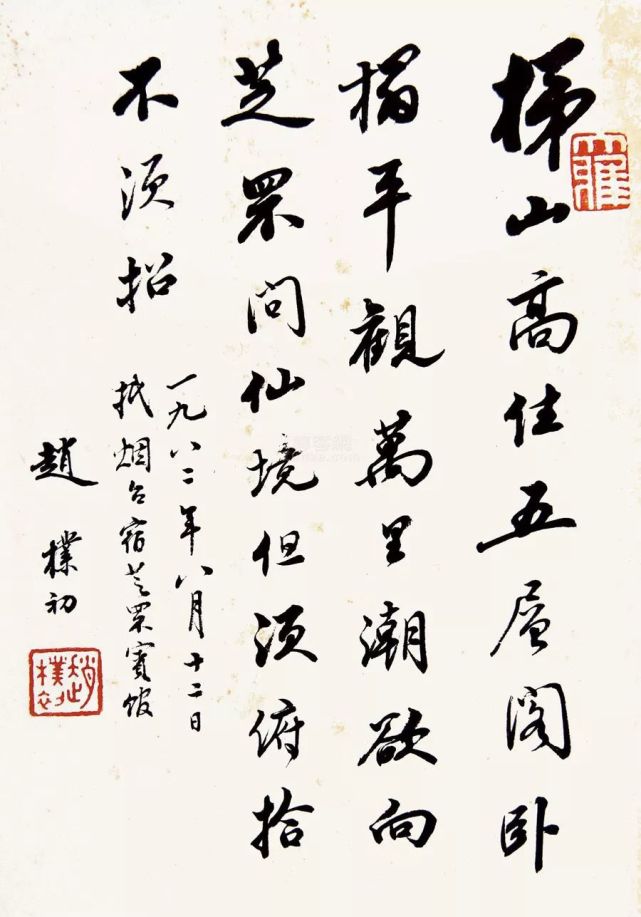 梯山高住五層阁卧
榻平觀萬里潮欲向
芝罘问仙境但须俯拾
不须招
一九八二年八月十二日
抵烟台宿芝罘賓馆
趙樸初
趙樸初